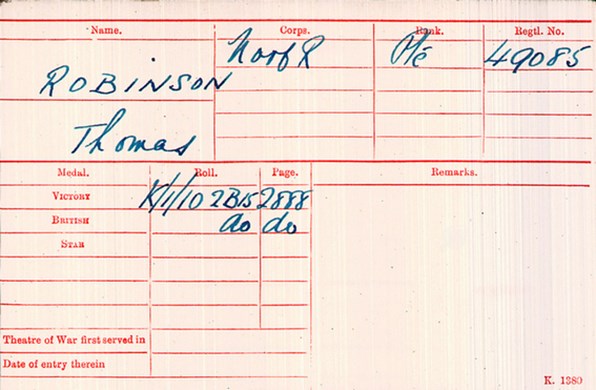 Name. Corps. Rank. Regtl. No.
Norf R Pte 49085
ROBINSON
Thomas
Medal. Roll. Page. Remarks.
VICTORY K/1/10 2B15 2888
BRITISH do do
STAR
Theatre of War first served in
Date of entry therein
K. 1380